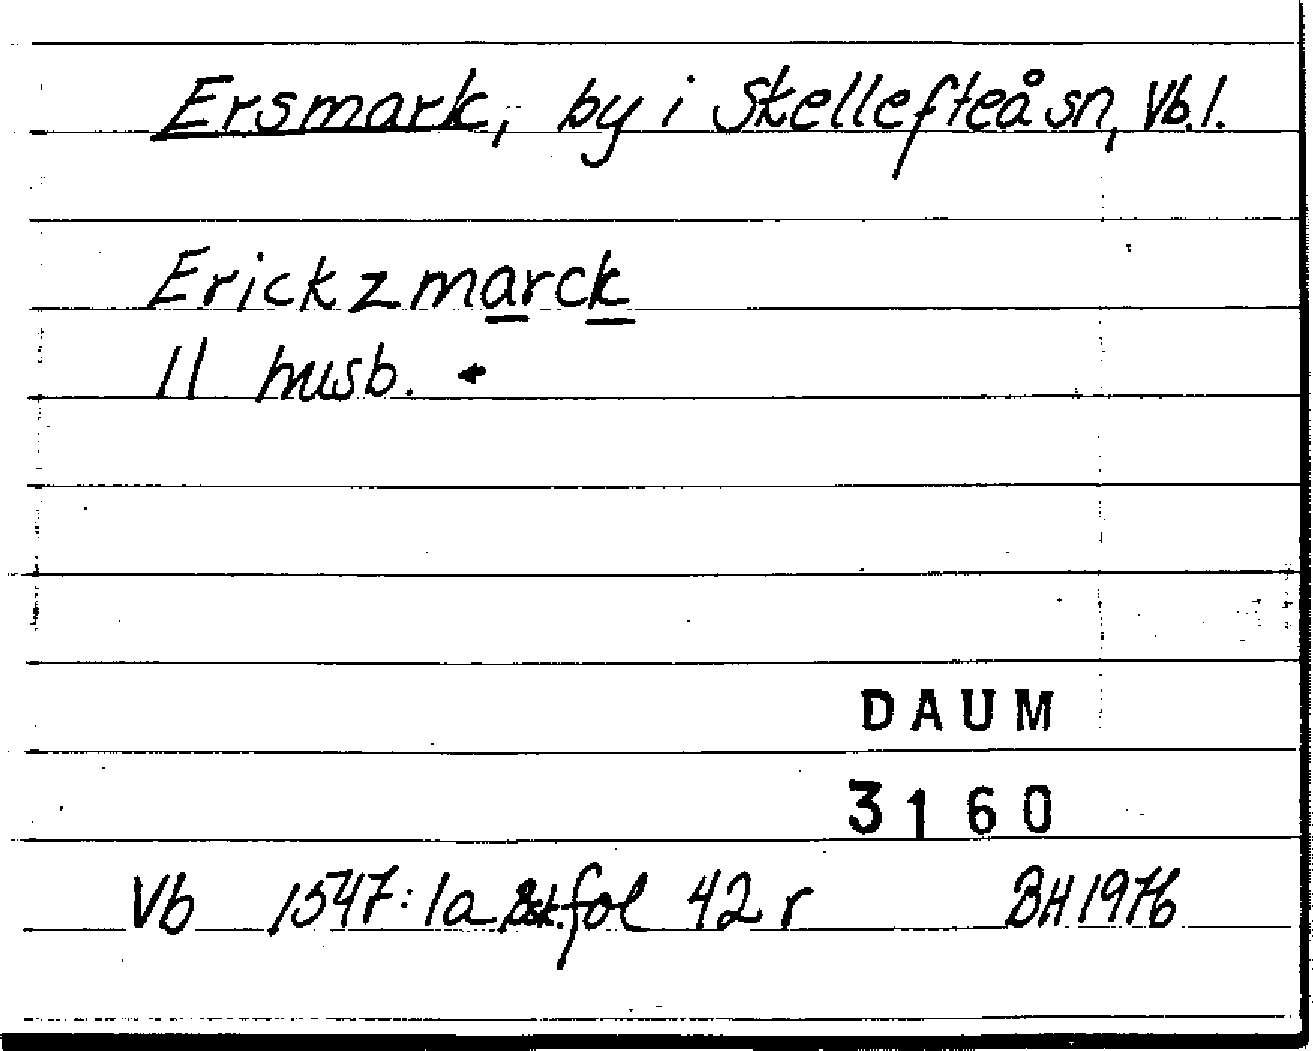 Ersmark, by i Skellefteå sn, Vb.l.
Erickzmarck
11 husb.
DAUM
3160
Vb 1547:1a fol 42 r BH 1976